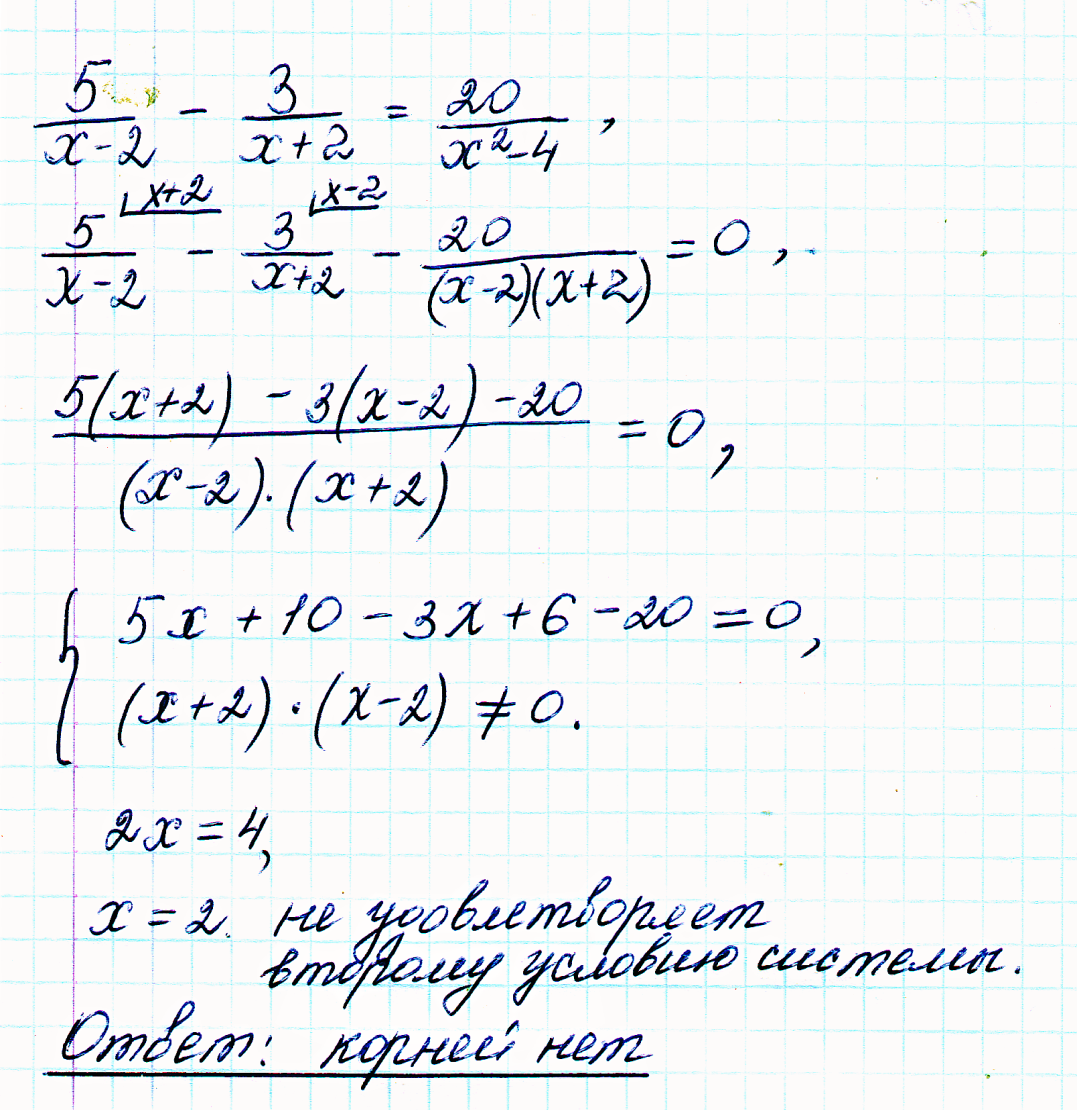 5/(x-2) - 3/(x+2) = 20/(x²-4),
5/(x-2) ⌊x+2 - 3/(x+2) ⌊x-2 - 20/((x-2)(x+2)) = 0,
(5(x+2) - 3(x-2) - 20)/((x-2)·(x+2)) = 0,
{ 5x + 10 - 3x + 6 - 20 = 0,
(x+2)·(x-2) ≠ 0.
2x = 4,
x = 2. не удовлетворяет
второму условию системы.
Ответ: корней нет